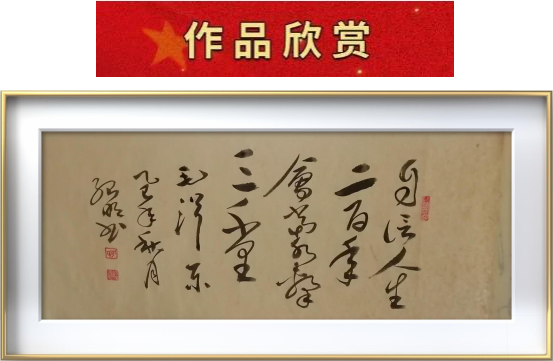 作品欣赏
自信人生
二百年
会当水击
三千里
毛泽东